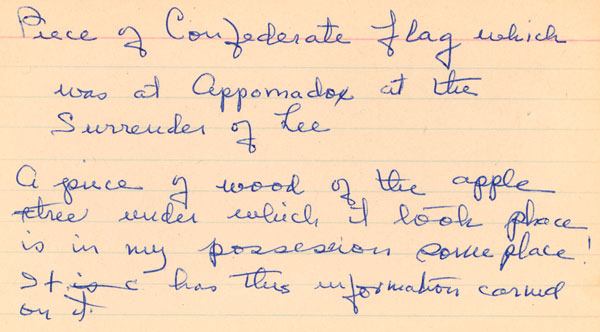 Piece of Confederate flag which
was at Appomadox at the
Surrender of Lee
A piece of wood of the apple
tree under which it took place
is in my possession someplace!
It is c has this information carved
on it.